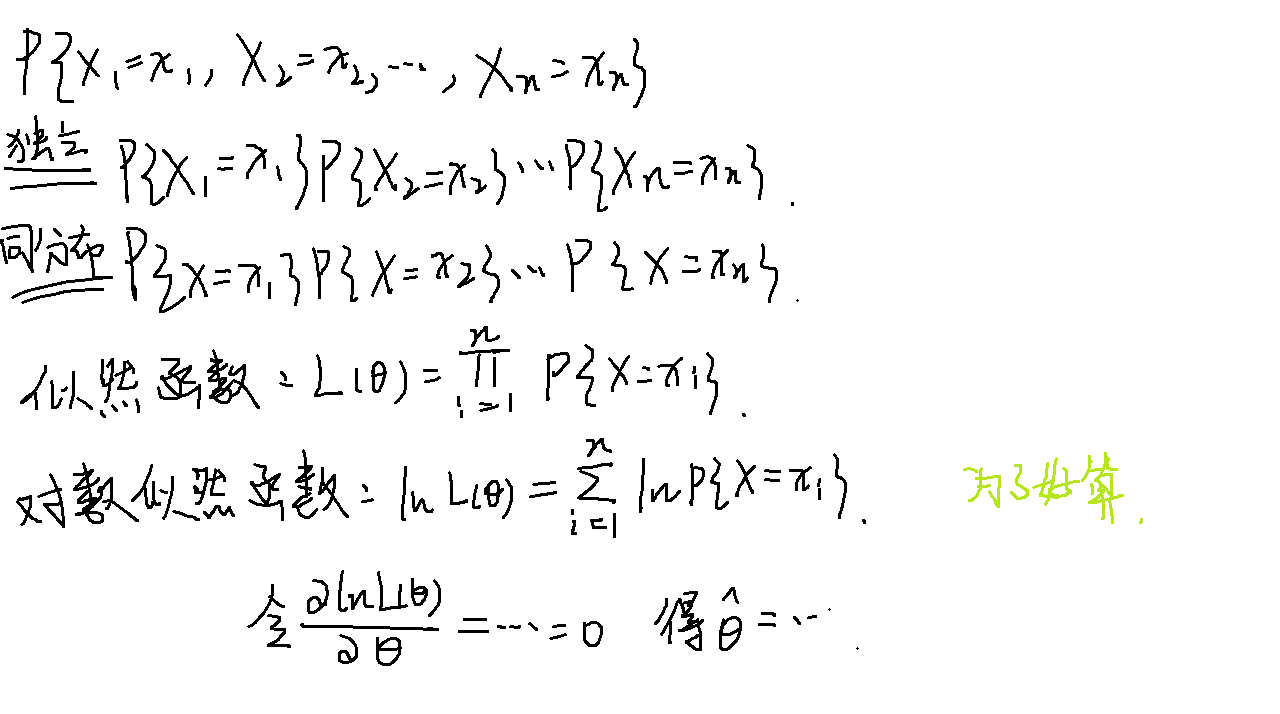 P{X₁=x₁, X₂=x₂, ⋯, Xₙ=xₙ}
独立 P{X₁=x₁}P{X₂=x₂}⋯P{Xₙ=xₙ}.
同分布 P{X=x₁}P{X=x₂}⋯P{X=xₙ}.
似然函数: L(θ)=∏ᵢ₌₁ⁿ P{X=xᵢ}.
对数似然函数: ln L(θ)=∑ᵢ₌₁ⁿ ln P{X=xᵢ}. 为了好算.
令 ∂lnL(θ)/∂θ =⋯=0 得 θ̂=⋯.